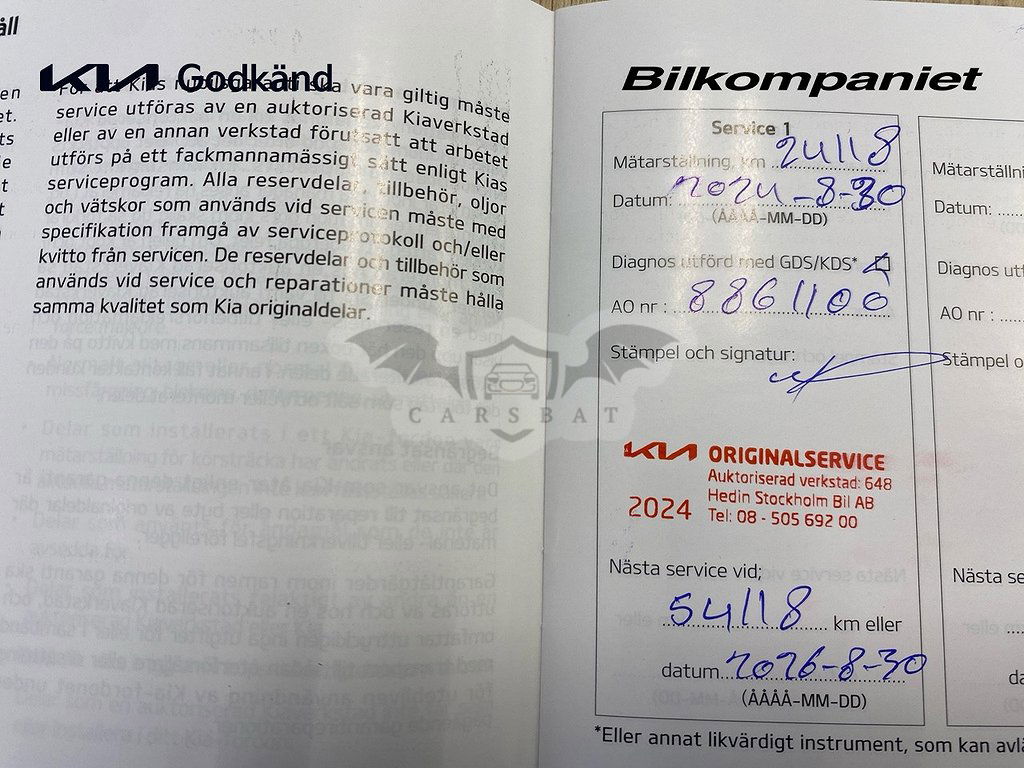 åll
en
et.
ts
e
t
r
KIA Godkänd
För att Kias nybilsgaranti ska vara giltig måste
service utföras av en auktoriserad Kiaverkstad
eller av en annan verkstad förutsatt att arbetet
utförs på ett fackmannamässigt sätt enligt Kias
serviceprogram. Alla reservdelar, tillbehör, oljor
och vätskor som används vid servicen måste med
specifikation framgå av serviceprotokoll och/eller
kvitto från servicen. De reservdelar och tillbehör som
används vid service och reparationer måste hålla
samma kvalitet som Kia originaldelar.
CARSBAT
Bilkompaniet
Service 1
Mätarställning, km 24118
Datum: 2024-8-30
(ÅÅÅÅ-MM-DD)
Diagnos utförd med GDS/KDS*
AO nr : 8861100
Stämpel och signatur:
KIA ORIGINALSERVICE
Auktoriserad verkstad: 648
Hedin Stockholm Bil AB
2024 Tel: 08 - 505 692 00
Nästa service vid;
54118 km eller
datum 2026-8-30
(ÅÅÅÅ-MM-DD)
*Eller annat likvärdigt instrument, som kan avlä
Mätarställni
Datum:
Diagnos utf
AO nr :
Stämpel o
Nästa se
da